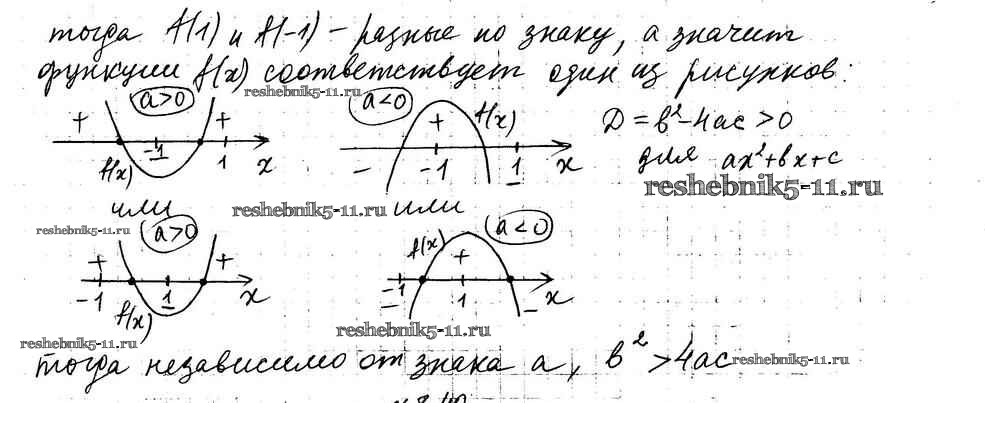 тогда f(1) и f(-1) - разные по знаку, а значит
функции f(x) соответствует один из рисунков:
reshebnik5-11.ru
a>0
a<0
+ +
+ f(x)
D = b²-4ac > 0
f(x) -1 1 x
- -1 1 - x
для ax²+bx+c
reshebnik5-11.ru
или
reshebnik5-11.ru
или
reshebnik5-11.ru
a>0
f(x)
a<0
+ +
+
-1 1 x
-1 1 x
f(x)
- -
reshebnik5-11.ru
reshebnik5-11.ru
тогда независимо от знака a, b² > 4ac
reshebnik5-11.ru